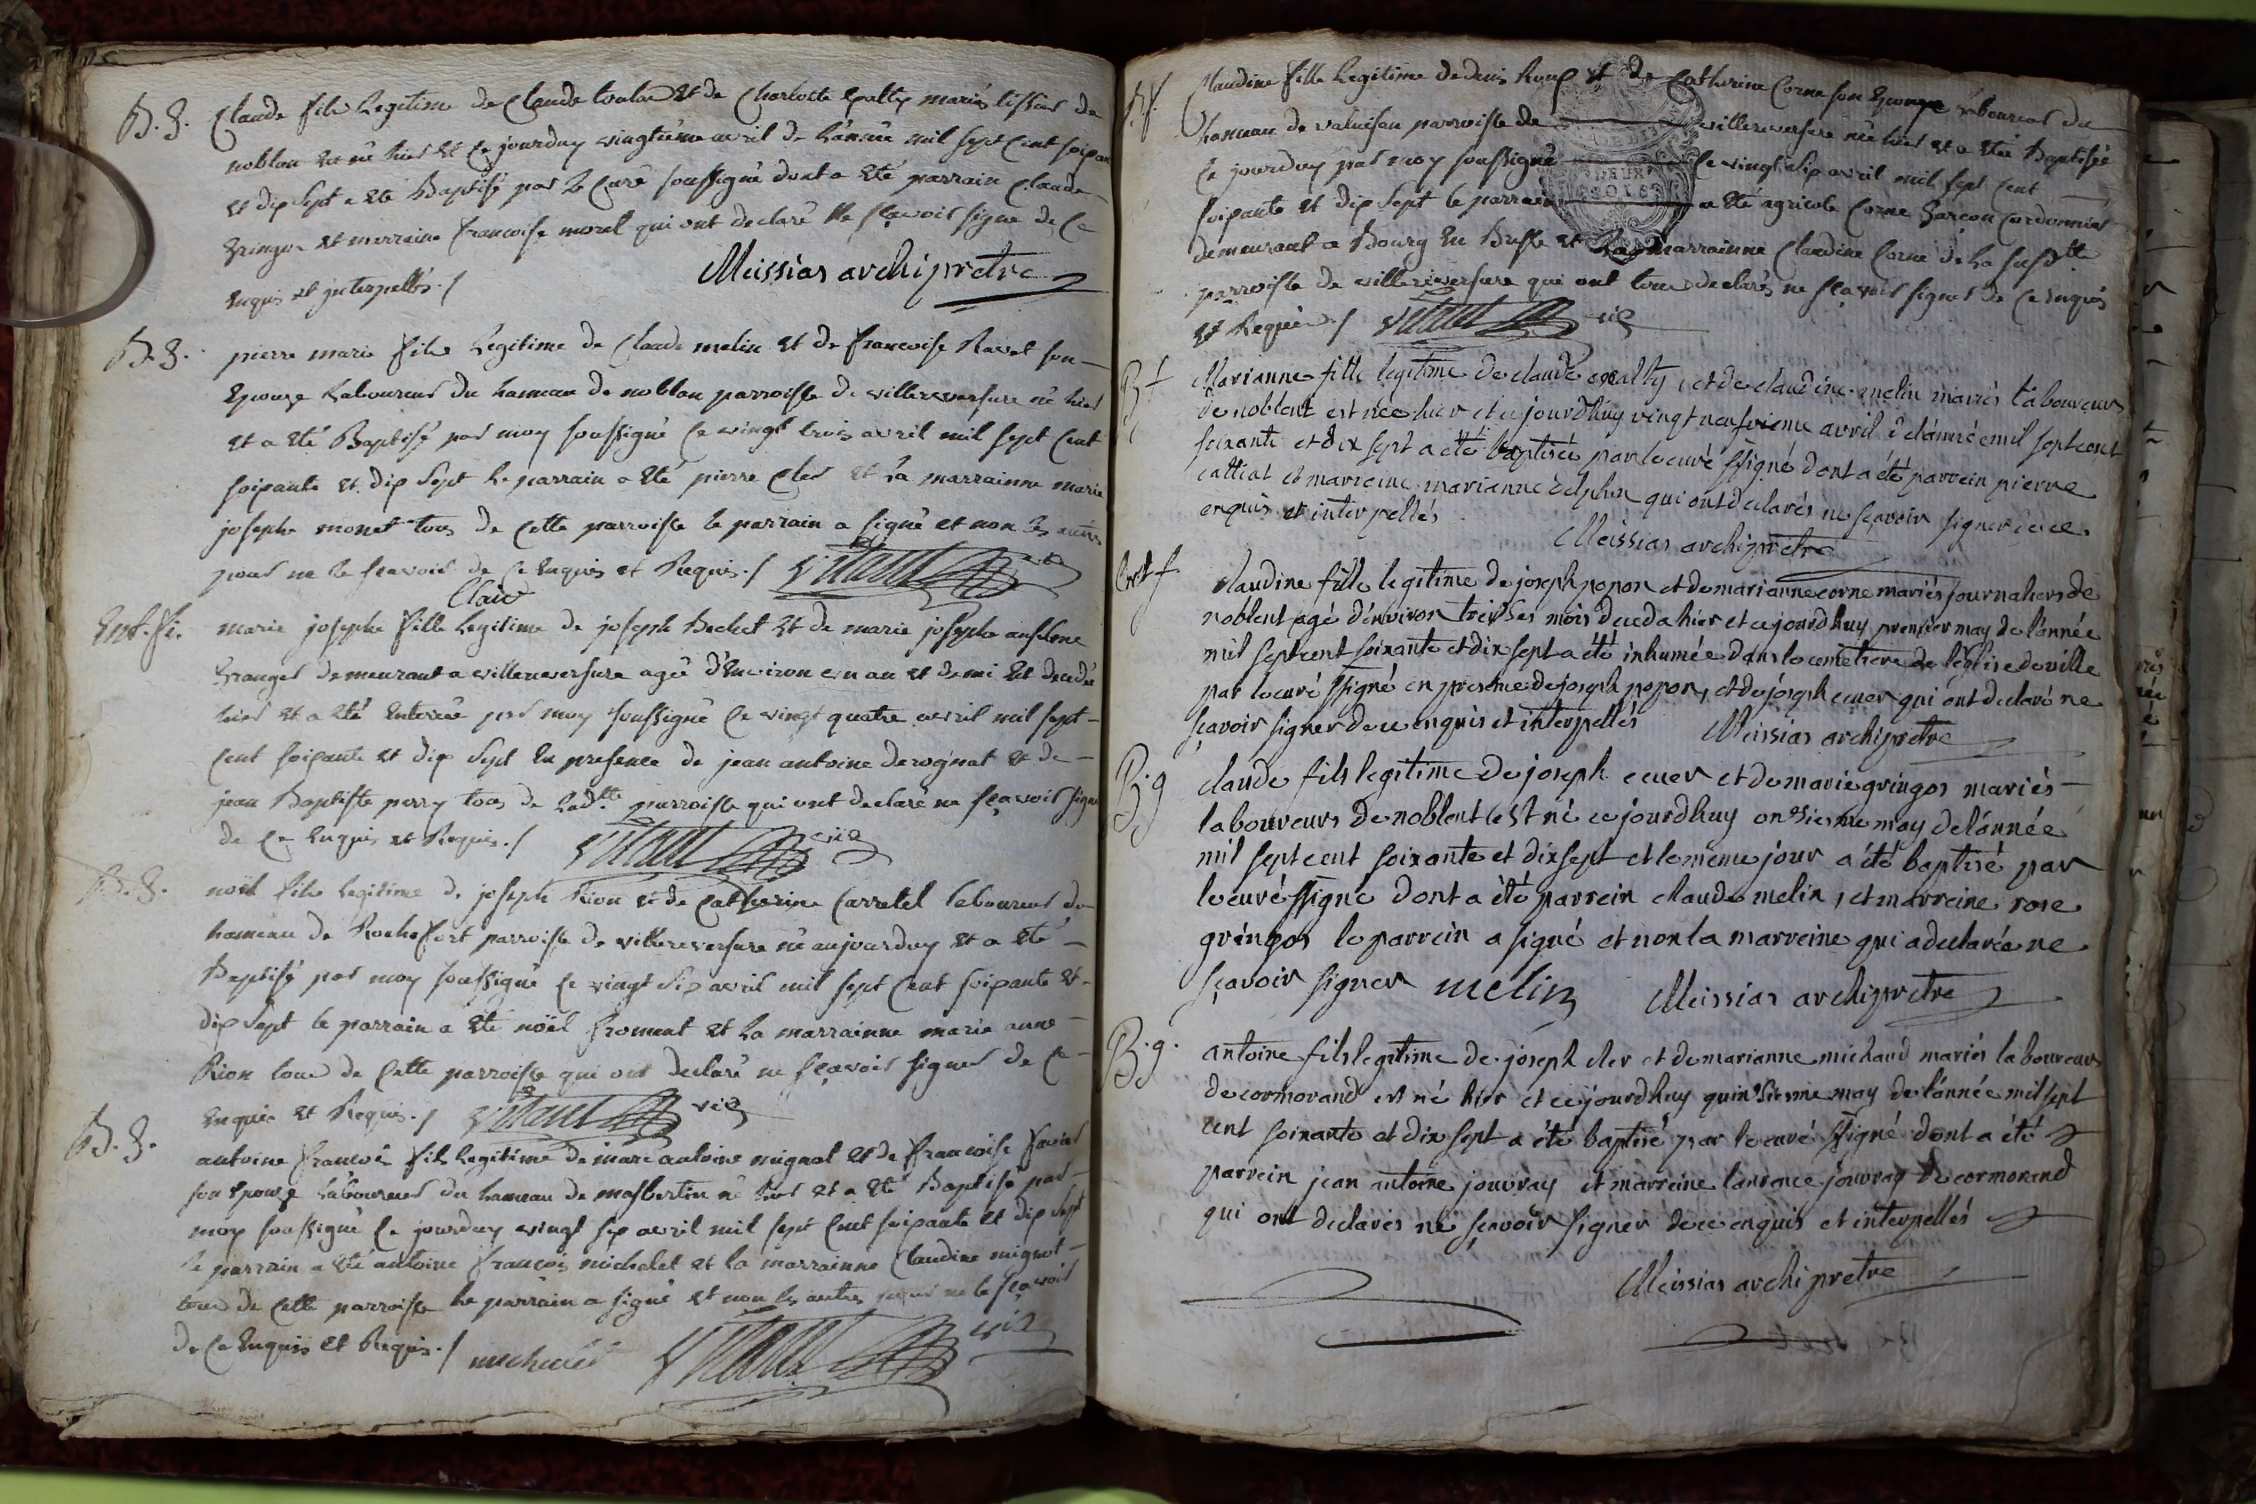 B. g. Claude fils Legitime de Claude et de Charlotte mariés tissier de
noblan est né hier et ce jourduy vingtième avril de L'année mil sept Cent soixante
et dix sept a été Baptisé par le Curé soussigné dont a été parrain Claude
gringoz et marraine francoise morel qui ont declaré Ne sçavoir signe de Ce
Enquis et jnterpellés ./ Meissias archipretre
B. g. pierre marie fils Legitime de Claude melin et de francoise Ravet son
Epouze Laboureur du hameau de noblan parroisse de villereversure né hier
et a été Baptisé par moy soussigné Ce vingt trois avril mil sept Cent
soixante et dix sept Le parrain a été pierre Cler et La marrainne marie
josephe monet tous de Cette parroisse le parrain a signé et non les autres
pour ne le sçavoir de Ce Enquis et Requis ./ vic
Clair
Ent. fi. marie josephe fille Legitime de joseph Bechet et de marie josephe anselme
Granger demeurant a villereversure agée d'Environ un an et demi est decedée
hier et a été Enterée par moy soussigné Ce vingt quatre avril mil sept
Cent soixante et dix sept En presence de jean antoine derognat et de
jean Baptiste perry tous de Ladte parroisse qui ont declaré ne sçavoir signer
de Ce Enquis et Requis ./ vic
B. g. noël fils Legitime de joseph Rion et de Catherine Carretel Laboureur du
hameau de Rochefort parroisse de villereversure né aujourduy et a été
Baptisé par moy soussigné Ce vingt six avril mil sept Cent soixante et
dix sept le parrain a été noël froment et La marrainne marie anne
Rion tous de Cette parroisse qui ont declaré ne sçavoir signer de Ce
Enquis et Requis ./ vic
B. g. antoine francois fils Legitime de marc antoine mignot et de francoise favier
son Epouze Laboureur du hameau de masbertin né hier et a été Baptisé par
moy soussigné Ce jourduy vingt six avril mil sept Cent soixante et dix sept
le parrain a été antoine françois michelet et la marrainne Claudine mignot
tous de Cette parroisse le parrain a signé et non les autres pour ne le sçavoir
de Ce Enquis et Requis ./ michelet vic
B. f. Claudine fille Legitime de denis Roux et de Catherine Corne son Epouze Laboureur du
hameau de valuisan parroisse de villereversure née hier et a été Baptisée
Ce jourduy par moy soussigné Ce vingt six avril mil sept Cent
soixante et dix sept le parrain a été agricole Corne Garçon Cordonnier
demeurant a Bourg En Bresse et La marrainne Claudine Corne de La susdtte
parroisse de villereversure qui ont tous declarés ne sçavoir signer de Ce Enquis
et Requis ./ vic
DEUX
SOLS
B f Marianne fille legitime de claude et de claudine melin mariés laboureurs
de noblent est née hier et ce jourdhuy vingt neufvieme avril de lánnée mil sept cent
soixante et dix sept a été baptisée par le curé ssigné dont a été parrein pierre
cattiat et marreine marianne délphin qui ont declarés ne sçavoir signer de ce
enquis et interpellés Meissias archiprêtre
Ent f claudine fille legitime de joseph popon et de marianne corne mariés journaliers de
noblent agé dénviron treisses mois decedà hier et ce jourdhuy premier may de lánnée
mil sept cent soixante et dix sept a été inhumée dans le cemetiere de léglise de ville
par le curé ssigné en presence de joseph popon, et de joseph cuer qui ont declaré ne
sçavoir signer de ce enquis et interpellés Meissias archiprêtre
B. g claude fils legitime de joseph cuer et de marie gringos mariés
laboureurs de noblent est né ce jourdhuy onziesme may de lánnée
mil sept cent soixante et dix sept et le meme jour a été baptisé par
le curé ssigné dont a été parrein claude melin, et marreine rose
gringos le parrein a signé et non la marreine qui a declarée ne
sçavoir signer melin Meissias archiprêtre
B. g. antoine fils legitime de joseph cler et de marianne michaud mariés laboureurs
de cormorand est né hier et ce jourdhuy quinsiesme may de lánnée mil sept
cent soixante et dix sept a été baptisé par le curé ssigné dont a été
parrein jean antoine jouvray et marreine laurence jouvray de cormorand
qui ont declarés ne sçavoir signer de ce enquis et interpellés
Meissias archiprêtre